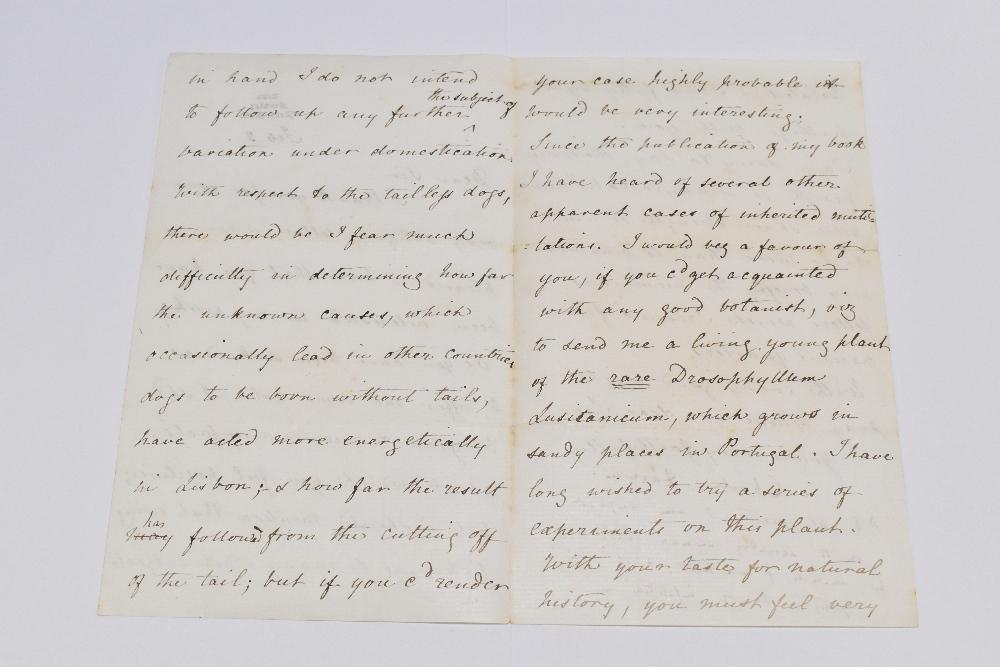 in hand I do not intend
the subject of
to follow up any further ^
variation under domestication.
With respect to the tailless dogs,
there would be I fear much
difficulty in determining how far
the unknown causes, which
occasionally lead in other countries
dogs to be born without tails,
have acted more energetically
in Lisbon; & how far the result
has
may followed from the cutting off
of the tail; but if you cd render
your case highly probable it
would be very interesting.
Since the publication of my book
I have heard of several other
apparent cases of inherited muti-
-lations. I would beg a favour of
you, if you cd get acquainted
with any good botanist, viz
to send me a living young plant
of the rare Drosophyllum
Lusitanicum, which grows in
sandy places in Portugal. I have
long wished to try a series of
experiments on this plant.
With your taste for natural
history, you must feel very